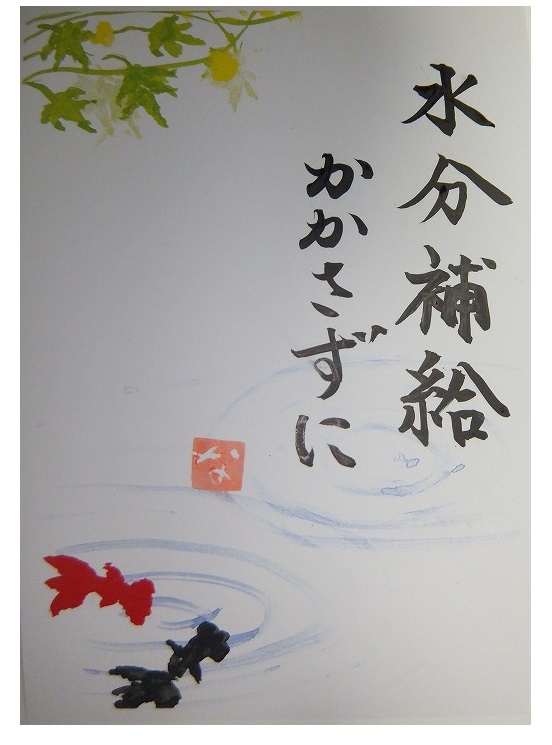 水分補給
かかさずに